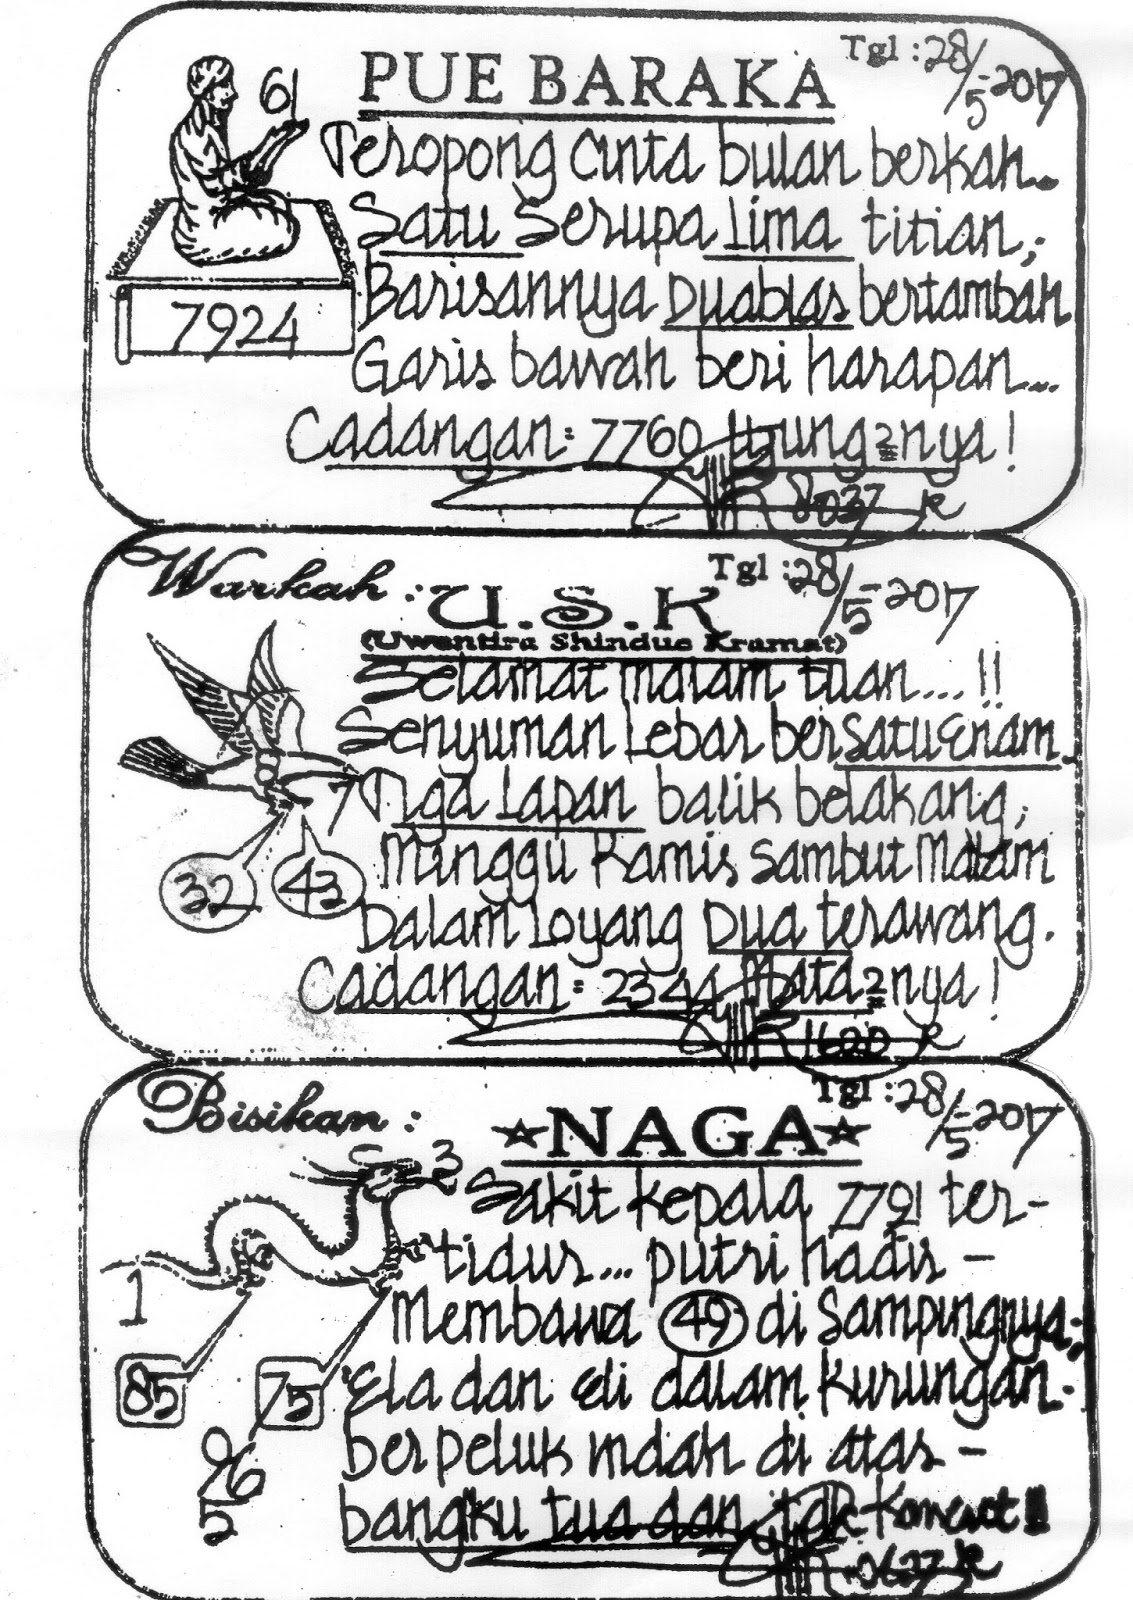 PUE BARAKA
Tgl : 28/5-2017
61
Teropong Cinta bulan berkah...
Satu Serupa Lima titian,-
7924
Barisannya Duablas bertambah
Garis bawah beri harapan....
Cadangan = 7760 Ujung2nya !
8037
Warkah :
U.S.K
Tgl : 28/5-2017
(Uwentira Shinduo Kramat)
Selamat malam tuan....!!
Senyuman Lebar bersatu Enam.
7
Tiga Lapan balik belakang,
32 43
Minggu Kamis Sambut Malam
Dalam Loyang Dua terawang.
Cadangan = 2344 Mata2nya !
1620
Bisikan :
NAGA
Tgl : 28/5-2017
3
Sakit kepala 7791 ter-
tidur... putri hadir -
1
Membawa 49 di Sampingnya,-
85 75
Ela dan Eli dalam Kurungan.
96
5
berpeluk indah di atas -
bangku tua dan tak
0627